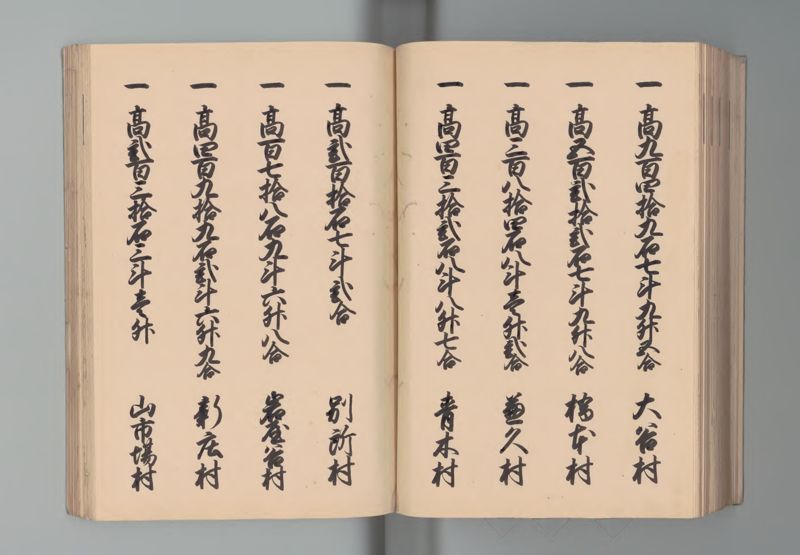 一 高九百四拾九石七斗九升五合 大谷村
一 高五百弐拾弐石七斗九升八合 橋本村
一 高三百八拾四石八斗壱升弐合 兼久村
一 高四百三拾弐石八斗八升七合 青木村
一 高弐百拾石七斗弐合 別所村
一 高百七拾八石九斗六升八合 岩屋谷村
一 高四百九拾九石弐斗六升九合 新庄村
一 高弐百三拾石三斗壱升 山市場村